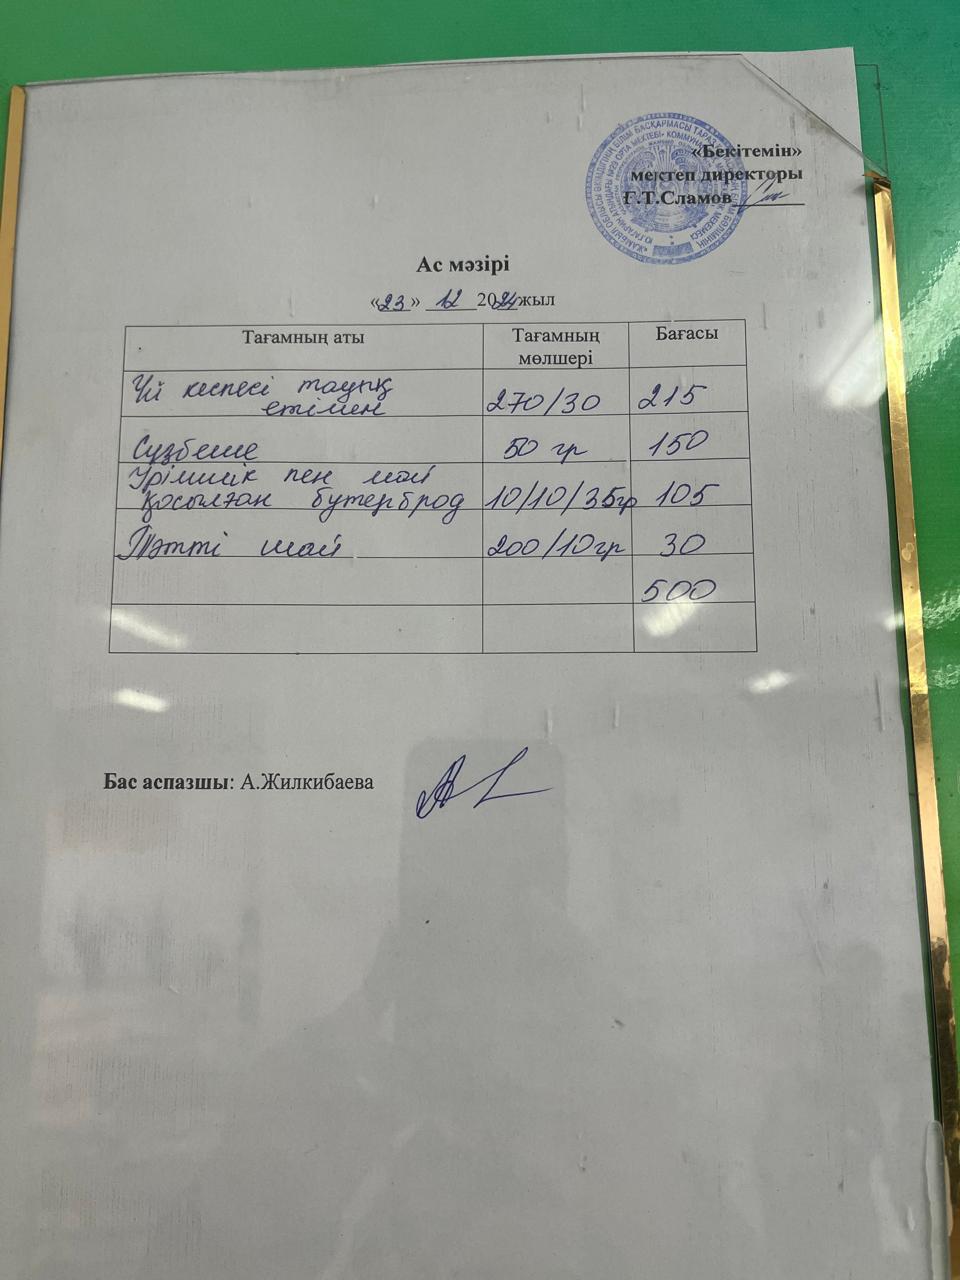 «Бекітемін»
мектеп директоры
Ғ.Т.Сламов
Ас мәзірі
«23» 12 2024 жыл
Тағамның аты Тағамның мөлшері Бағасы
Үй кеспесі тауық
етімен 270/30 215
Сүзбеше 50 гр 150
Ірімшік пен май
қосылған бутерброд 10/10/35гр 105
Тәтті шай 200/10гр 30
500
Бас аспазшы: А.Жилкибаева